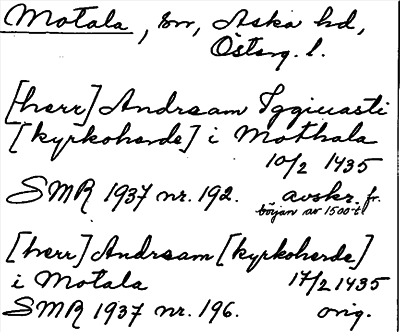 Motala, sn, Aska hd,
Österg. l.
[herr] Andream Yggiuasti
[kyrkoherde] i Mothala
10/2 1435
SMR 1937 nr. 192. avskr. fr.
början av 1500-t
[herr] Andream [kyrkoherde]
i Motala 17/2 1435
SMR 1937 nr. 196. orig.